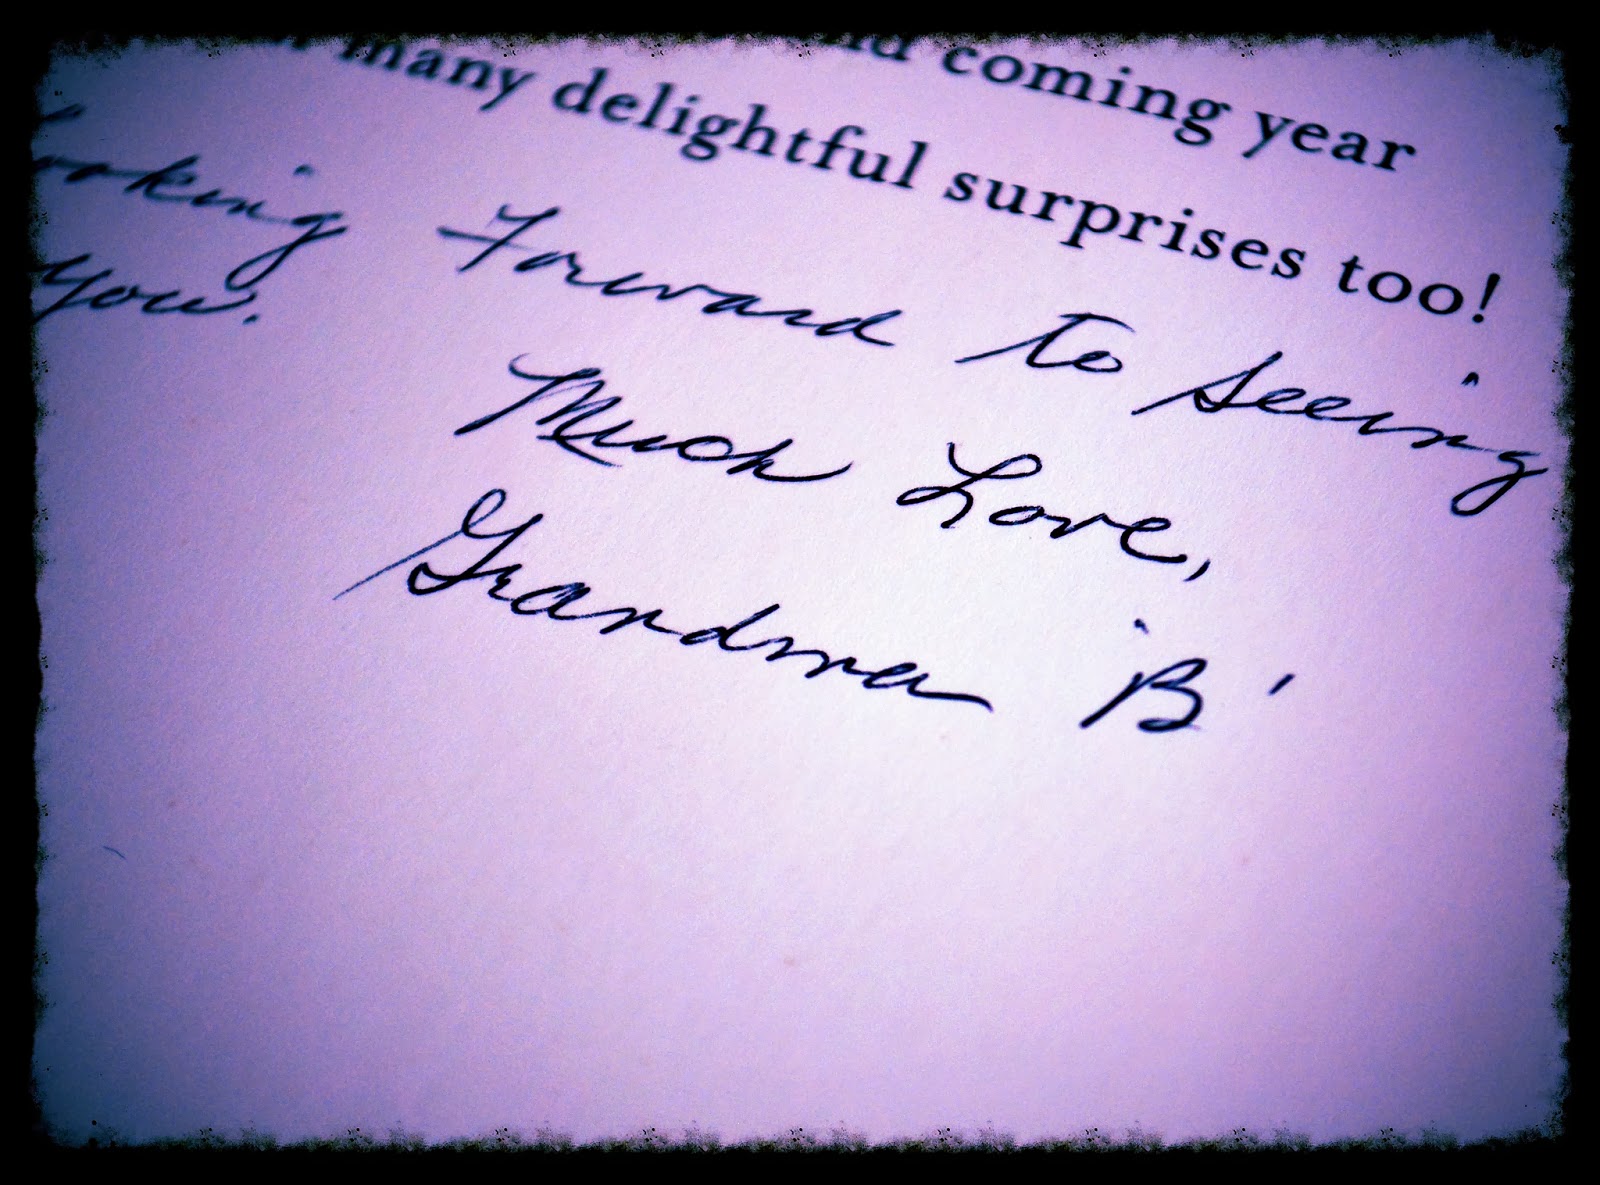 coming year
many delightful surprises too!
Looking Forward to seeing
you.
Much Love,
Grandma 'B'